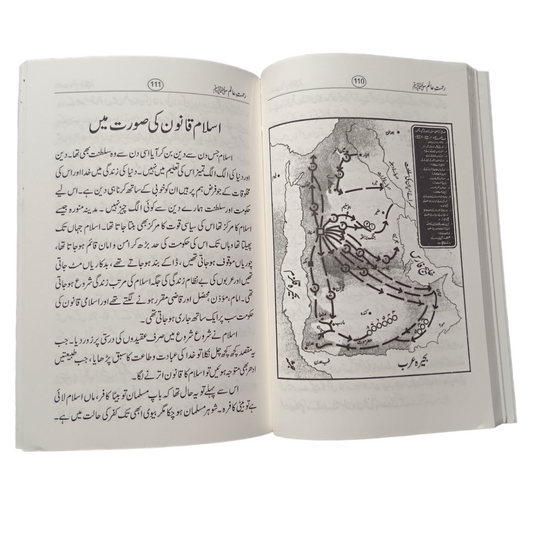 رحمتِ عالم صلی اللہ علیہ وسلم
110
بحیرۂ قلزم
خلیج فارس
بحیرہ عرب
رحمتِ عالم صلی اللہ علیہ وسلم
111
اسلام قانون کی صورت میں
اسلام جس دن سے دین بن کر آیا اسی دن سے وہ سلطنت بھی تھا۔ دین
اور دنیا کی الگ الگ تمیز اس کی تعلیم میں نہیں۔ دنیا کی زندگی میں خدا اور اس کی
مخلوقات کے جو فرض ہم پر ہیں ان کو خوبی کے ساتھ کرنا ہی دین ہے۔ اس لیے
حکومت اور سلطنت ہمارے دین سے کوئی الگ چیز نہیں۔ مدینہ منورہ جیسے
اسلام کا مرکز تھا اس کی سیاسی قوت کا مرکز بھی بنتا جاتا تھا۔ اسلام جہاں تک
پھیلتا تھا وہاں تک اس کی حکومت کی حد بڑھ کر امن و امان قائم ہو جاتا تھا،
چوریاں موقوف ہو جاتی تھیں، ڈاکے بند ہو جاتے تھے، بدکاریاں مٹ جاتی
تھیں اور عربوں کی بے نظام زندگی کی جگہ اسلام کی مرتب زندگی شروع ہو جاتی
تھی۔ امام، مؤذن، محصل اور قاضی مقرر ہونے لگتے تھے اور اسلامی قانون کی
حکومت سب پر ایک ساتھ جاری ہو جاتی تھی۔
اسلام نے شروع شروع میں صرف عقیدوں کی درستی پر زور دیا۔ جب
یہ مقصد کچھ کچھ چل نکلا تو خدا کی عبادت و طاعت کا سبق پڑھایا، جب طبیعتیں
ادھر بھی متوجہ ہوئیں تو اسلام کا قانون اترنے لگا۔
اس سے پہلے تو یہ حال تھا کہ باپ مسلمان تو بیٹا کافر، ماں اسلام لائی
ہے تو بیٹی کافرہ۔ شوہر مسلمان ہو چکا مگر بیوی ابھی تک کفر کی حالت میں ہے۔